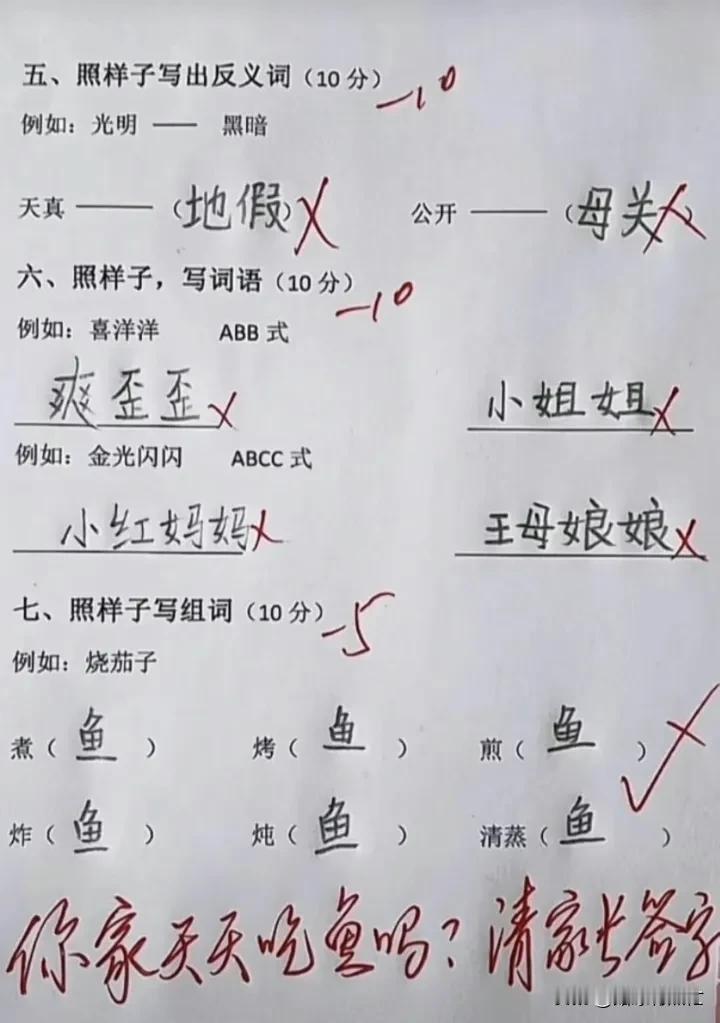 五、照样子写出反义词（10 分） -10
例如：光明 —— 黑暗
天真 ——（地假） 公开 ——（母关）
六、照样子，写词语（10 分） -10
例如：喜洋洋 ABB 式
爽歪歪 小姐姐
例如：金光闪闪 ABCC 式
小红妈妈 王母娘娘
七、照样子写组词（10 分） -5
例如：烧茄子
煮（鱼） 烤（鱼） 煎（鱼）
炸（鱼） 炖（鱼） 清蒸（鱼）
你家天天吃鱼吗？清家长签字